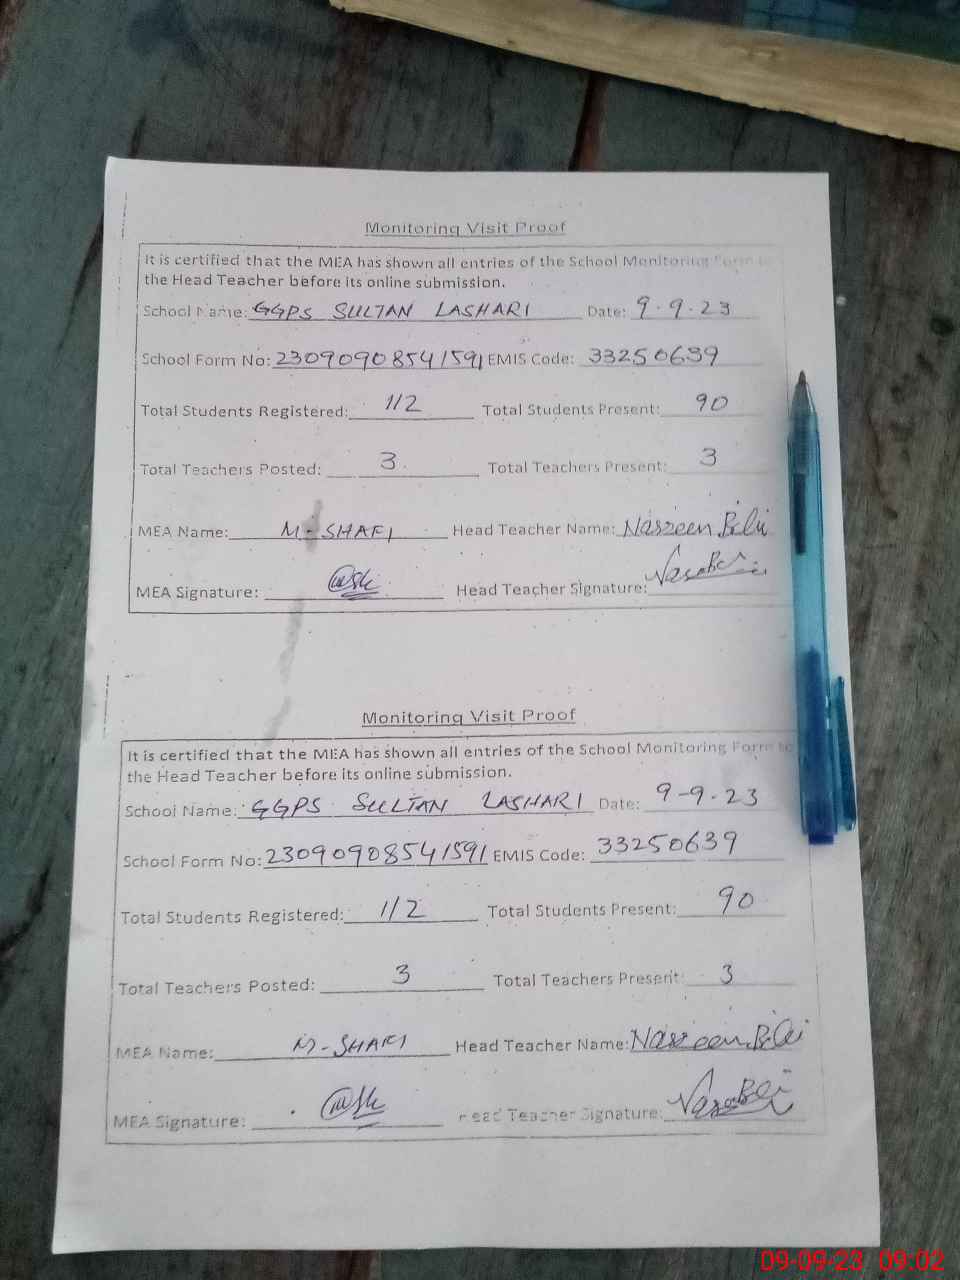 Monitoring Visit Proof
It is certified that the MEA has shown all entries of the School Monitoring Form to
the Head Teacher before its online submission.
School Name: GGPS SULTAN LASHARI Date: 9.9.23
School Form No: 23090908541591 EMIS Code: 33250639
Total Students Registered: 112 Total Students Present: 90
Total Teachers Posted: 3. Total Teachers Present: 3
MEA Name: M-SHAFI Head Teacher Name: Nasreen Bibi
MEA Signature: Head Teacher Signature:
Monitoring Visit Proof
It is certified that the MEA has shown all entries of the School Monitoring Form to
the Head Teacher before its online submission.
School Name: GGPS SULTAN LASHARI Date: 9-9.23
School Form No: 23090908541591 EMIS Code: 33250639
Total Students Registered: 112 Total Students Present: 90
Total Teachers Posted: 3 Total Teachers Present: 3
MEA Name: M-SHAFI Head Teacher Name: Nasreen Bibi
MEA Signature: Head Teacher Signature:
09-09-23 09:02